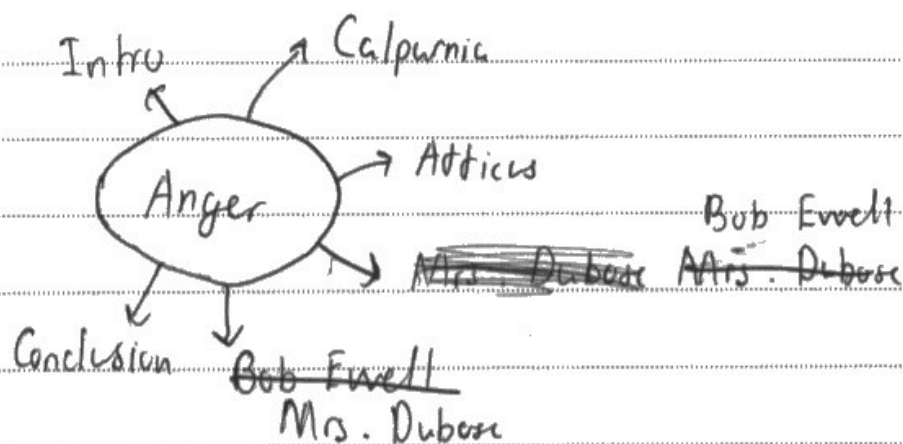 Intro
Calpurnia
Anger
Atticus
Bob Ewell
Mrs. Dubose Mrs. Dubose
Conclusion
Bob Ewell
Mrs. Dubose